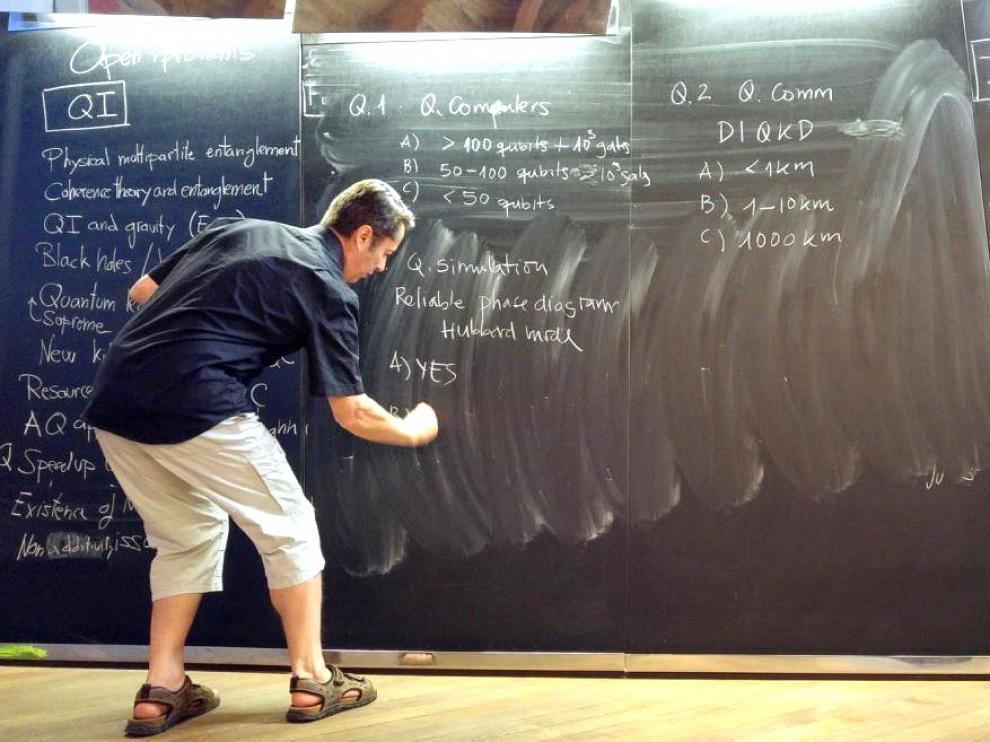 Open problems
QI
Physical multipartite entanglement
Coherence theory and entanglement
QI and gravity
Black holes /
Quantum
Supreme
New
Resource
C
AQ
Q Speedup
Existence of
Non additivity
Q.1 Q. Computers
A) > 100 qubits + 10³ gats
B) 50-100 qubits 10³ gats
C) < 50 qubits
Q. Simulation
Reliable phase diagram
Hubbard mode
A) YES
B)
Q.2 Q. Comm
DIQKD
A) <1km
B) 1-10km
C) 1000km